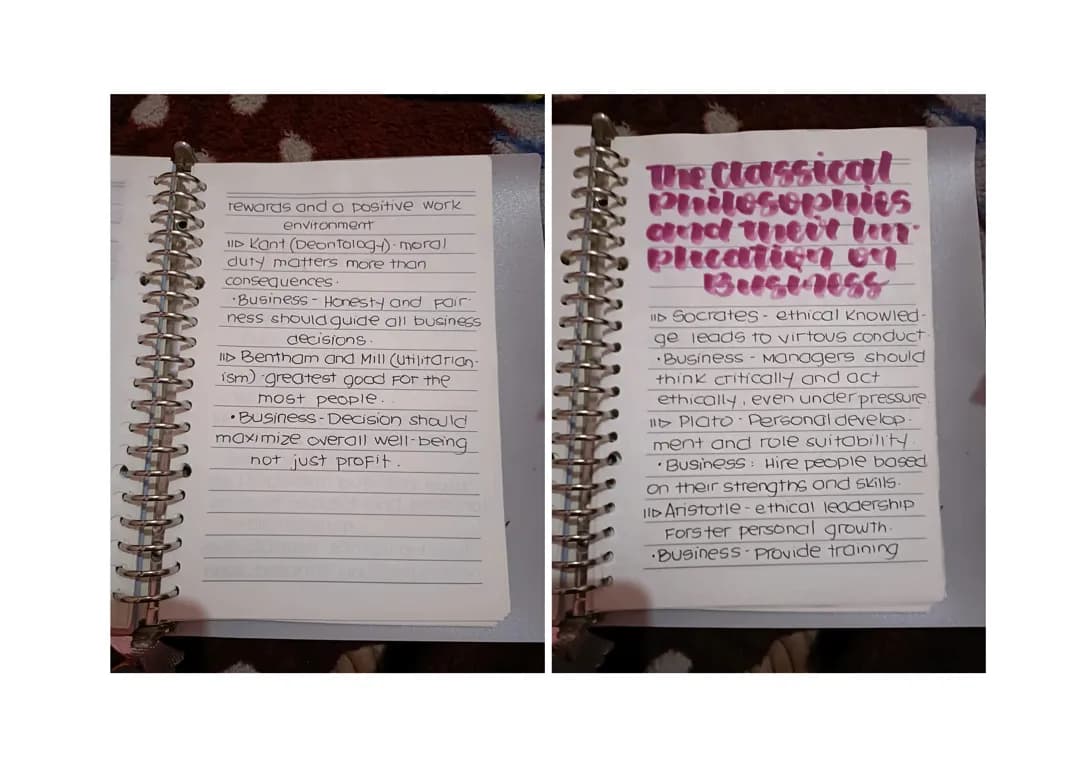 rewards and a positive work
environment
Kant (Deontology) - moral
duty matters more than
consequences.
• Business - Honesty and Fair-
ness should guide all business
decisions.
Bentham and Mill (Utilitarian-
ism) - greatest good For the
most people.
• Business - Decision should
maximize overall well-being
not just profit.
The Classical
Philosophies
and their Im-
plication on
Business
Socrates - ethical Knowled-
ge leads to virtous conduct.
• Business - Managers should
think critically and act
ethically, even under pressure.
Plato - Personal develop-
ment and role suitability.
• Business: Hire people based
on their strengths and skills.
Aristotle - ethical leadership
Forster personal growth.
• Business - Provide training